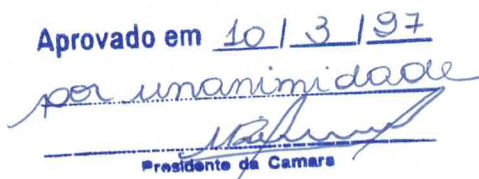 Aprovado em 10 / 3 / 97
por unanimidade
Presidente da Camara